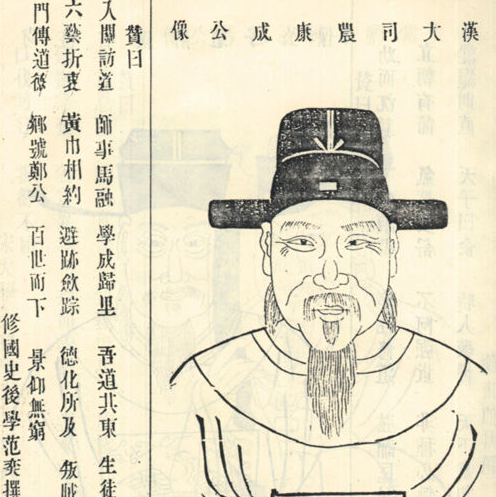 漢大司農康成公像
贊曰
入關訪道 師事馬融 學成歸里 吾道其東 生徒
六藝折衷 黃巾相約 避跡斂踪 德化所及 叛賊
門傳道徳 鄉號鄭公 百世而下 景仰無窮
修國史後學范奕撰